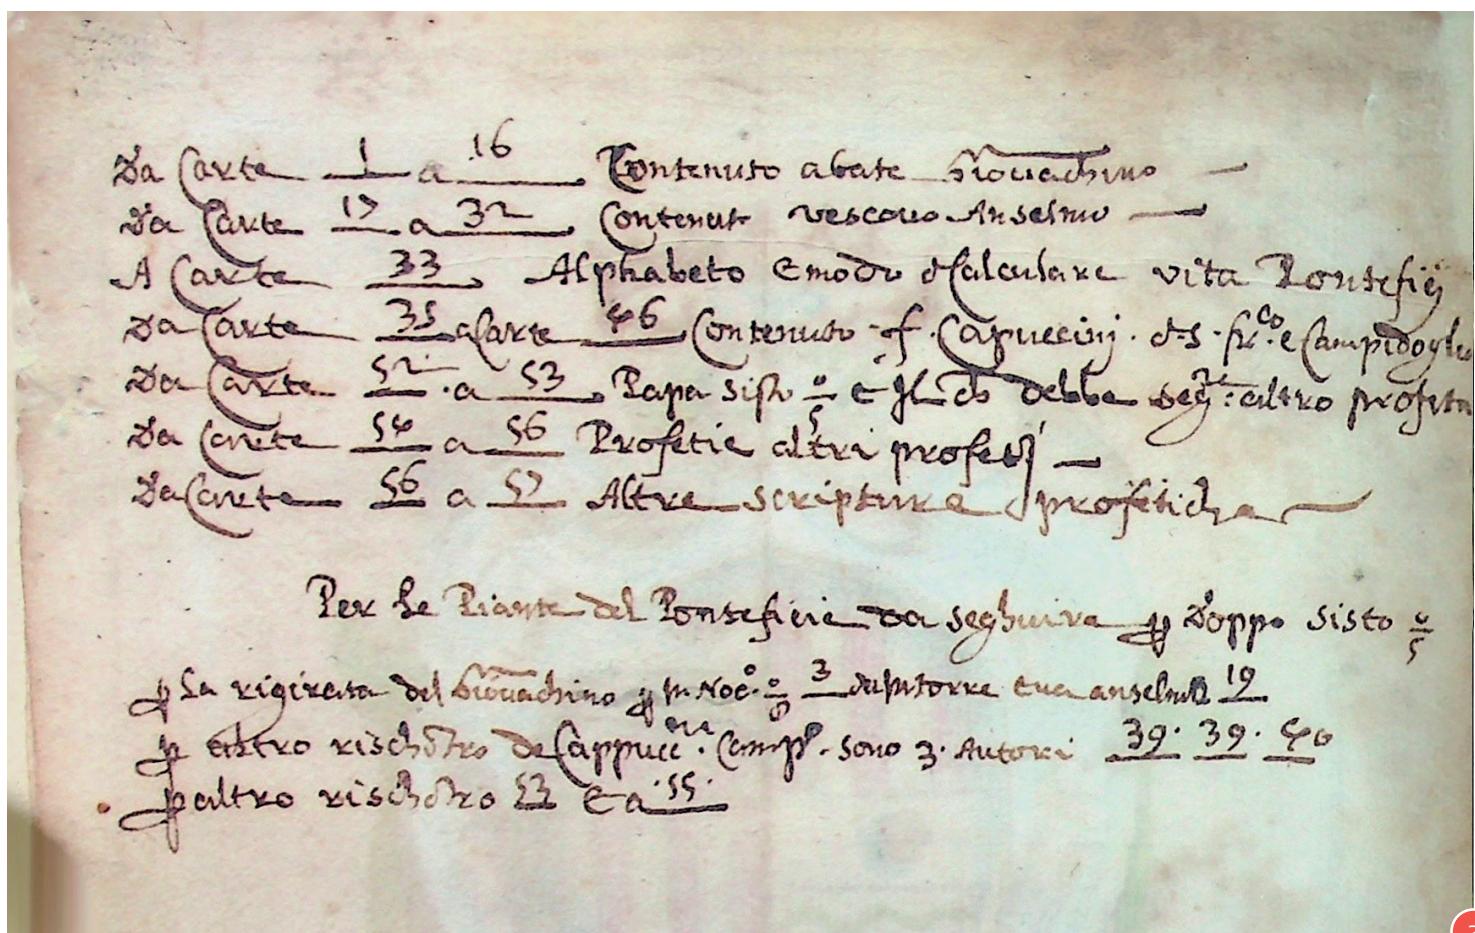 Da Carte 1 a 16 Contenuto abate Giovachino
Da Carte 17 a 32 Contenut vescovo Anselmo
A Carte 33 Alphabeto E modo d Calculare vita Pontefiij
Da Carte 35 a Carte 46 Contenuto f. Capuccinj. d S. fr.co e Campidoglio
Da Carte 52 a 53 Papa Sisto o/5 e Il ch debbe seg.re altro profeta
Da Carte 54 a 56 Profetie altri profetj
Da Carte 56 a 57 Altre scripture profetiche
Per le Piante del Pontefície da seghuire p doppo Sisto o/5
p la rigirata del Giovachino p 3 torre e va anselmo 19
p altro rischōtro de Cappucc.ni Camp. sono 3. Autori 39. 39. 40
p altro rischōtro 53 E a 55.